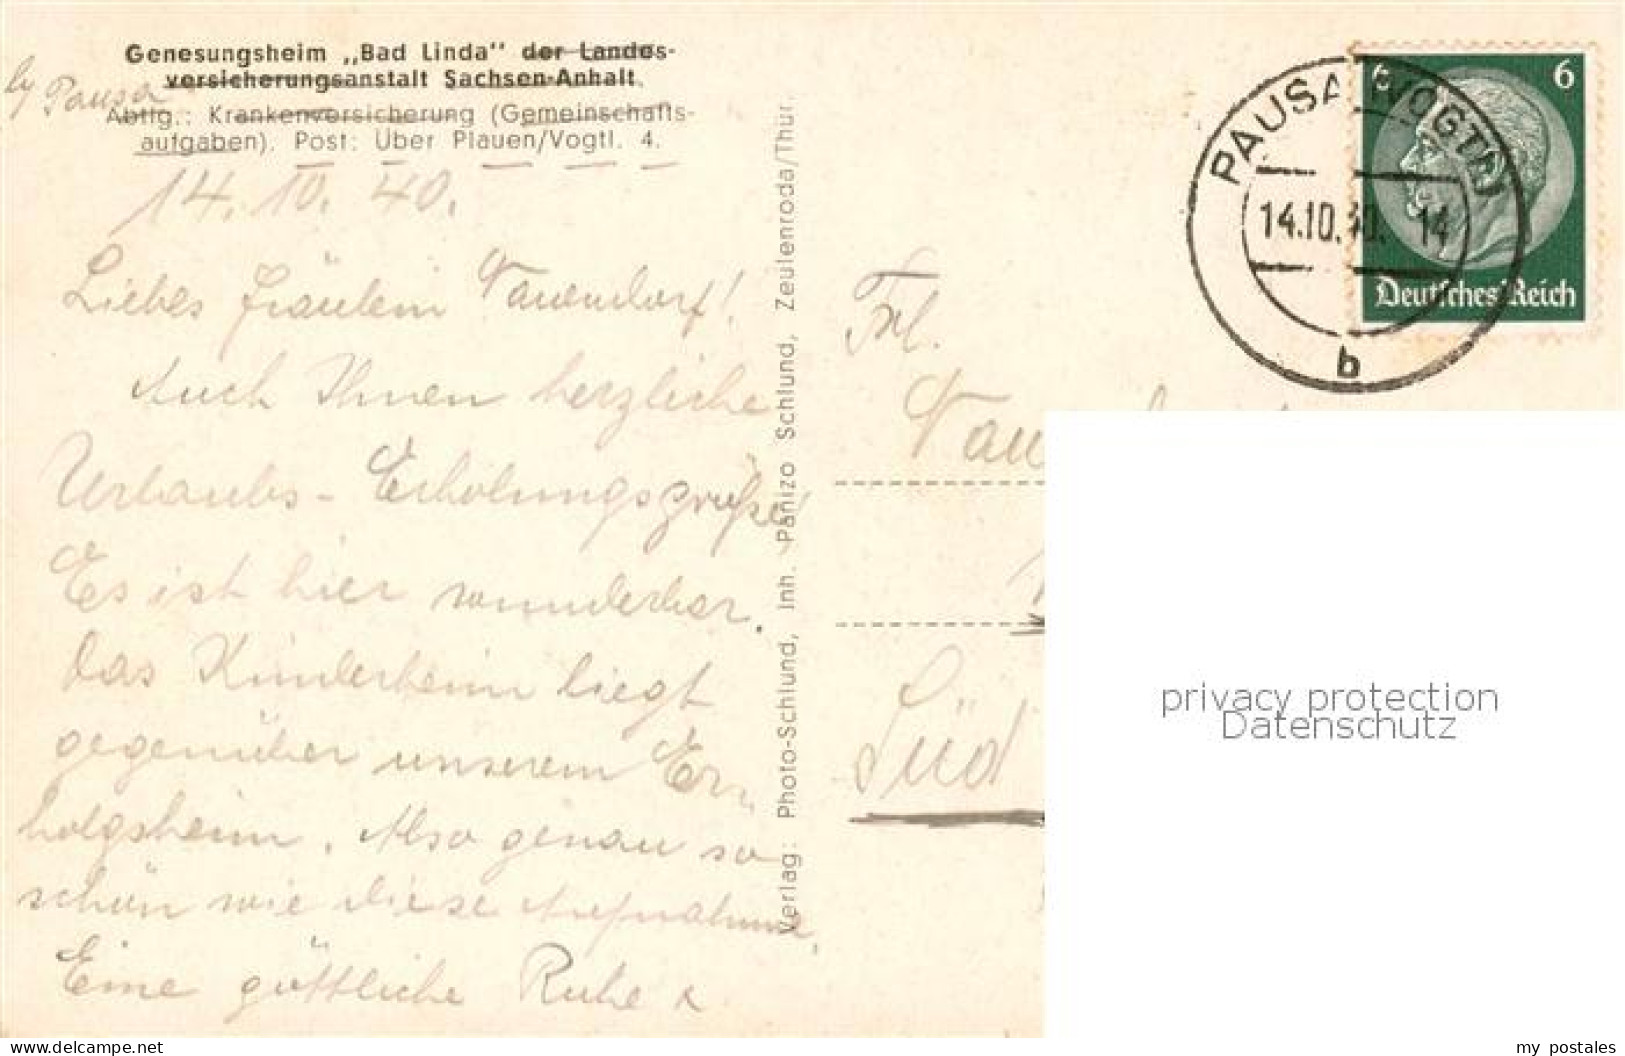 Genesungsheim „Bad Linda" der Landes-
versicherungsanstalt Sachsen-Anhalt.
by Pausa
Abtlg.: Krankenversicherung (Gemeinschafts-
aufgaben). Post: Über Plauen/Vogtl. 4.
14. 10. 40.
Liebes Fräulein Nauendorf!
Auch Ihnen herzliche
Urlaubs- Erholungsgrüße!
Es ist hier wunderbar.
Das Kinderheim liegt
gegenüber unserem Er-
holgsheim. Also genau so
schön wie diese Aufnahme.
Eine göttliche Ruhe
Verlag: Photo-Schlund, Inh. Panizo Schlund, Zeulenroda/Thür.
PAUSA (VOGTL)
14.10.40. 14
b
6 6
Deutsches Reich
Frl.
Nau
Süd
privacy protection
Datenschutz
www.delcampe.net
my_postales